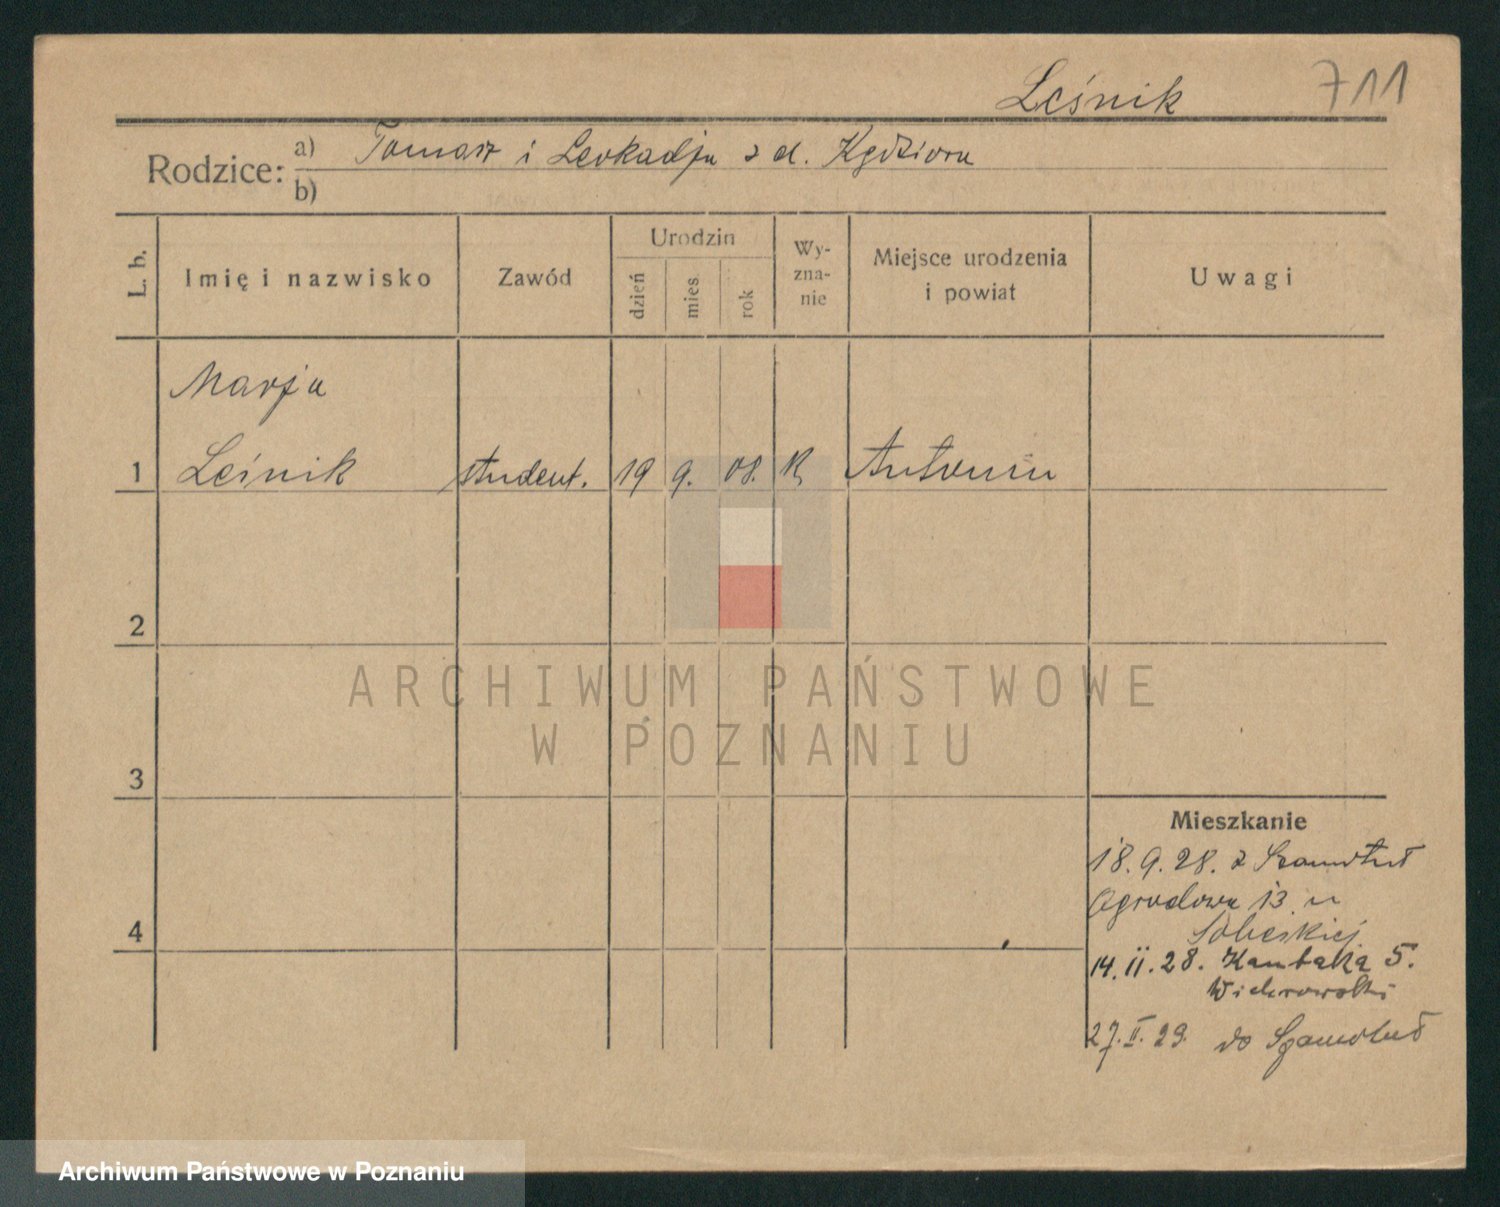 Leśnik 711
Rodzice: a) Tomasz i Leokadja z d. Kędziora
b)
L. b. Imię i nazwisko Zawód Urodzin dzień mies. rok Wyznanie Miejsce urodzenia i powiat Uwagi
Marja
1 Leśnik student. 19 9. 08. K Antonin
2
3
4
Mieszkanie
18. 9. 28. z Szamotuł
Ogrodowa 13 u
Sobeskiej
14. II. 28. Kantaka 5.
27. II. 29. do Szamotuł
ARCHIWUM PAŃSTWOWE
W POZNANIU
Archiwum Państwowe w Poznaniu